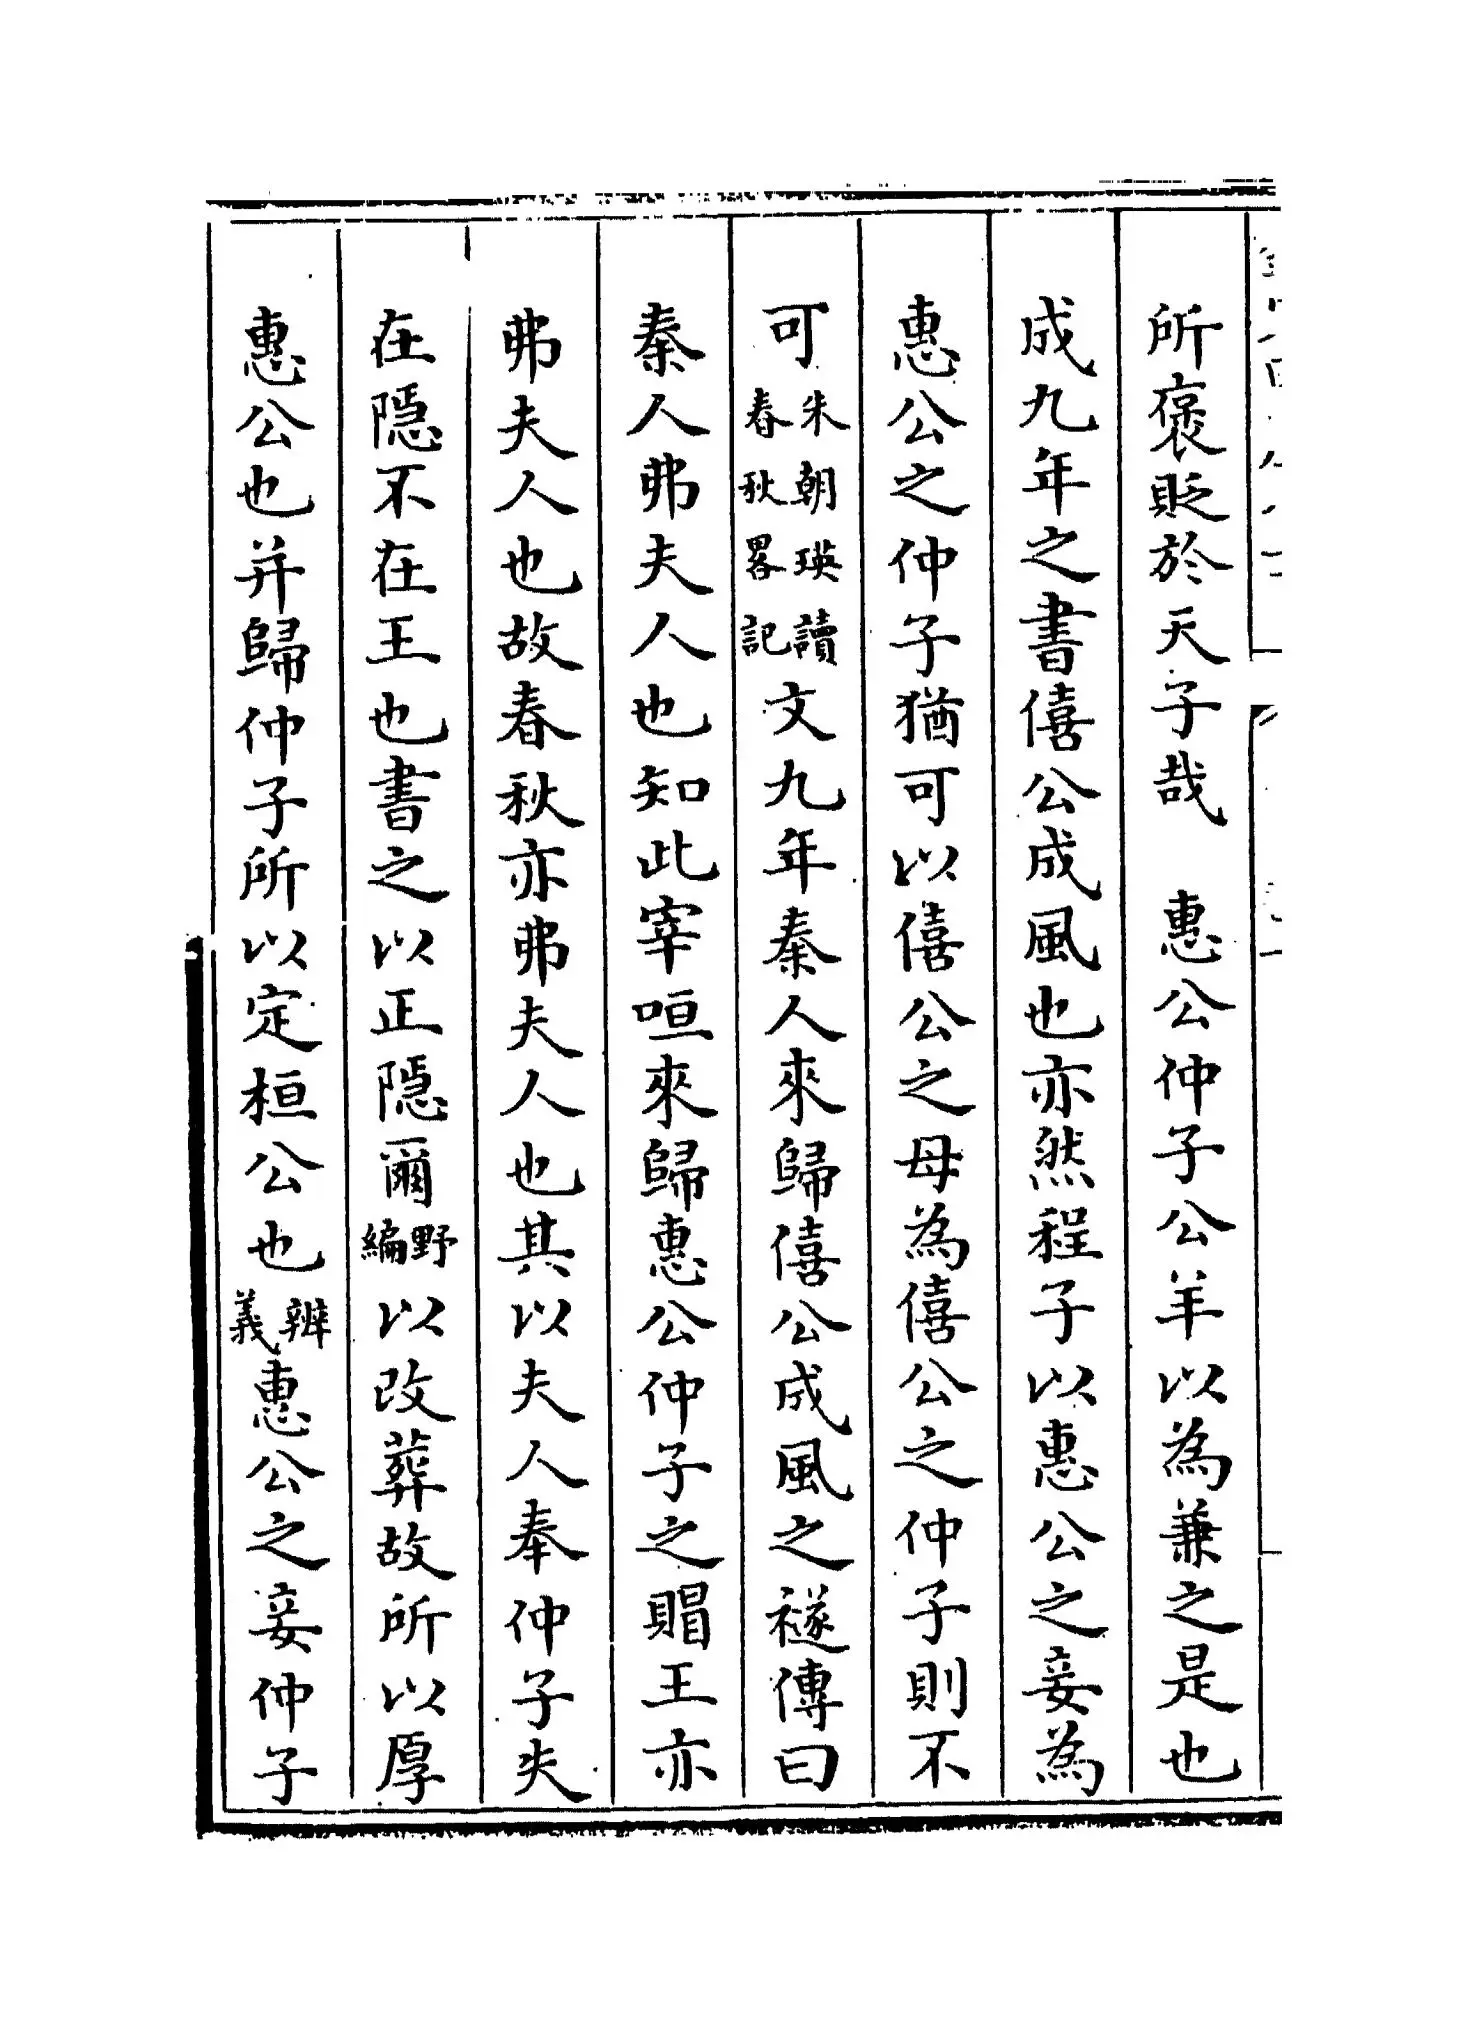 所褒貶於天子哉　惠公仲子公羊以為兼之是也
成九年之書僖公成風也亦然程子以惠公之妾為
惠公之仲子猶可以僖公之母為僖公之仲子則不
可朱朝瑛讀春秋畧記文九年秦人來歸僖公成風之襚傳曰
秦人弗夫人也知此宰咺來歸惠公仲子之賵王亦
弗夫人也故春秋亦弗夫人也其以夫人奉仲子失
在隱不在王也書之以正隱爾野編以改葬故所以厚
惠公也并歸仲子所以定桓公也辨義惠公之妾仲子